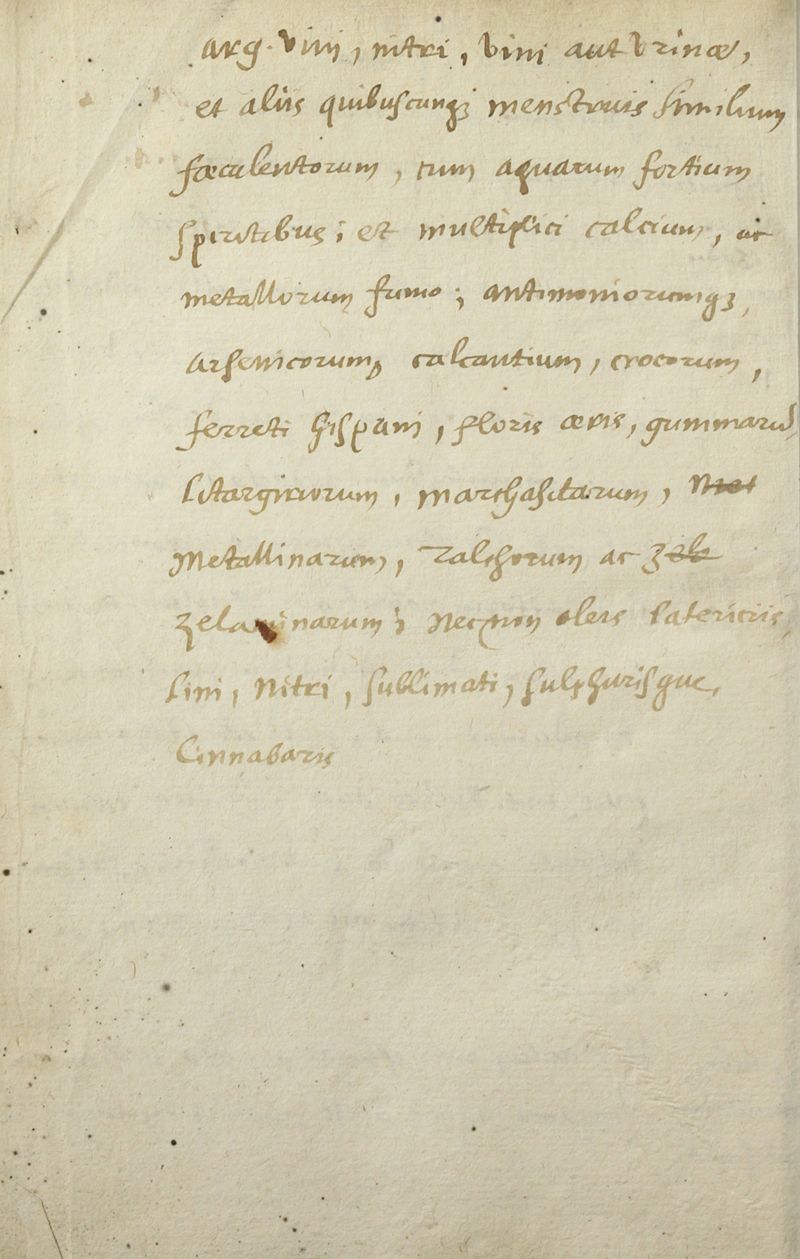 arg. vivi, nitri, vini aut vrinæ,
et aliis quibuscunqʒ menstruis similium
fœculentorum, tum aquarum fortium
spiritibus; et multiplici calcium, ac
metallorum fumo; antimoniorumqʒ,
arsenicorum, calcantium, crocorum,
ferreti hispani, floris æris, gummarum,
litargiriorum, marchasitarum, Met
Metallinarum, Talchorum ac zel
zelaminarum; necnon oleis latericiis,
lini, Nitri, sublimati, sulphurisque,
Cinnabaris